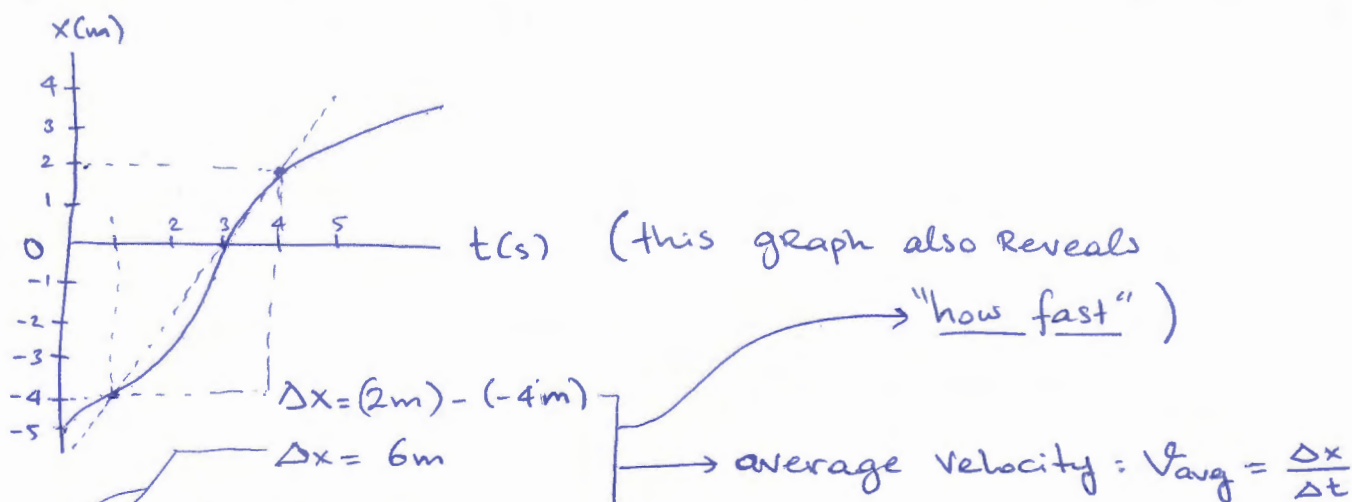 x(m)
4
3
2
1
2 3 4 5
0
t(s) (this graph also Reveals
"how fast")
-1
-2
-3
-4
-5
Δx=(2m)-(-4m)
Δx= 6m
average velocity: Vavg = Δx/Δt